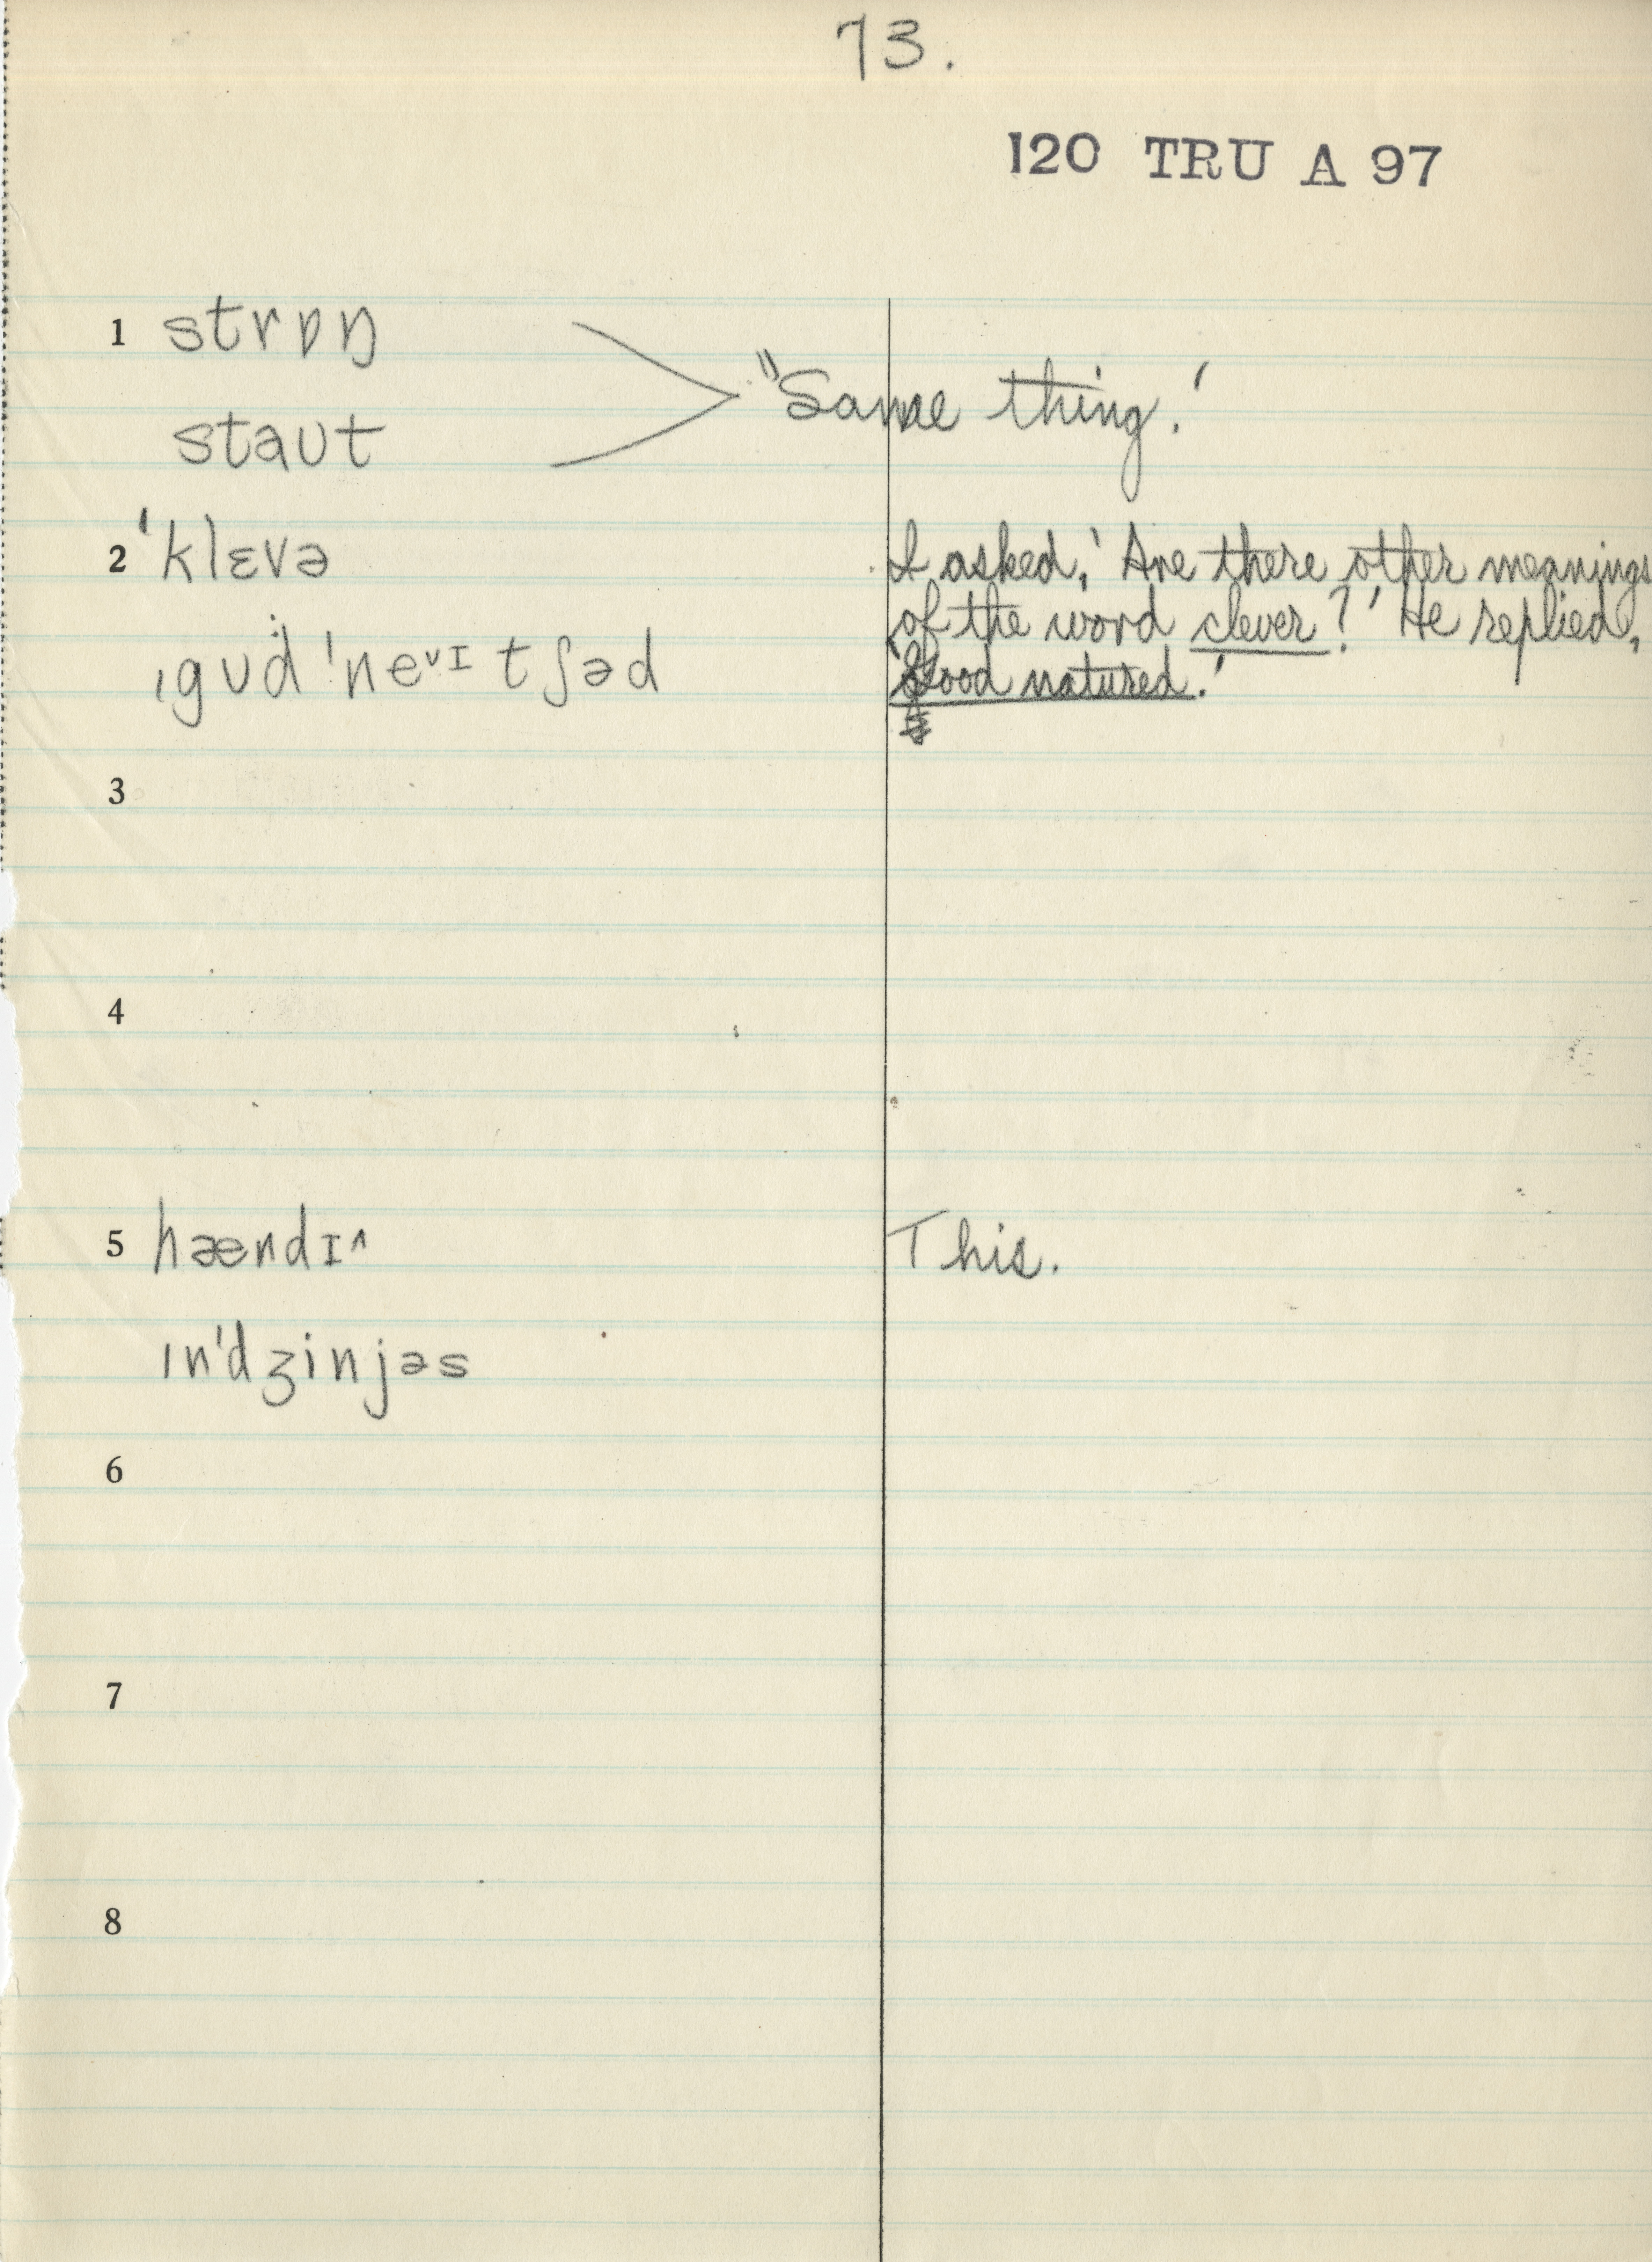 73.
120 TRU A 97
1 strɒŋ
staʊt
"Same thing.'
2 'klɛvə
I asked, 'Are there other meanings
of the word clever?' He replied,
ˌgʊd 'neᵛɪtʃəd
'Good natured.'
3
4
5 hændɪ^
This.
ɪn'dʒinjəs
6
7
8